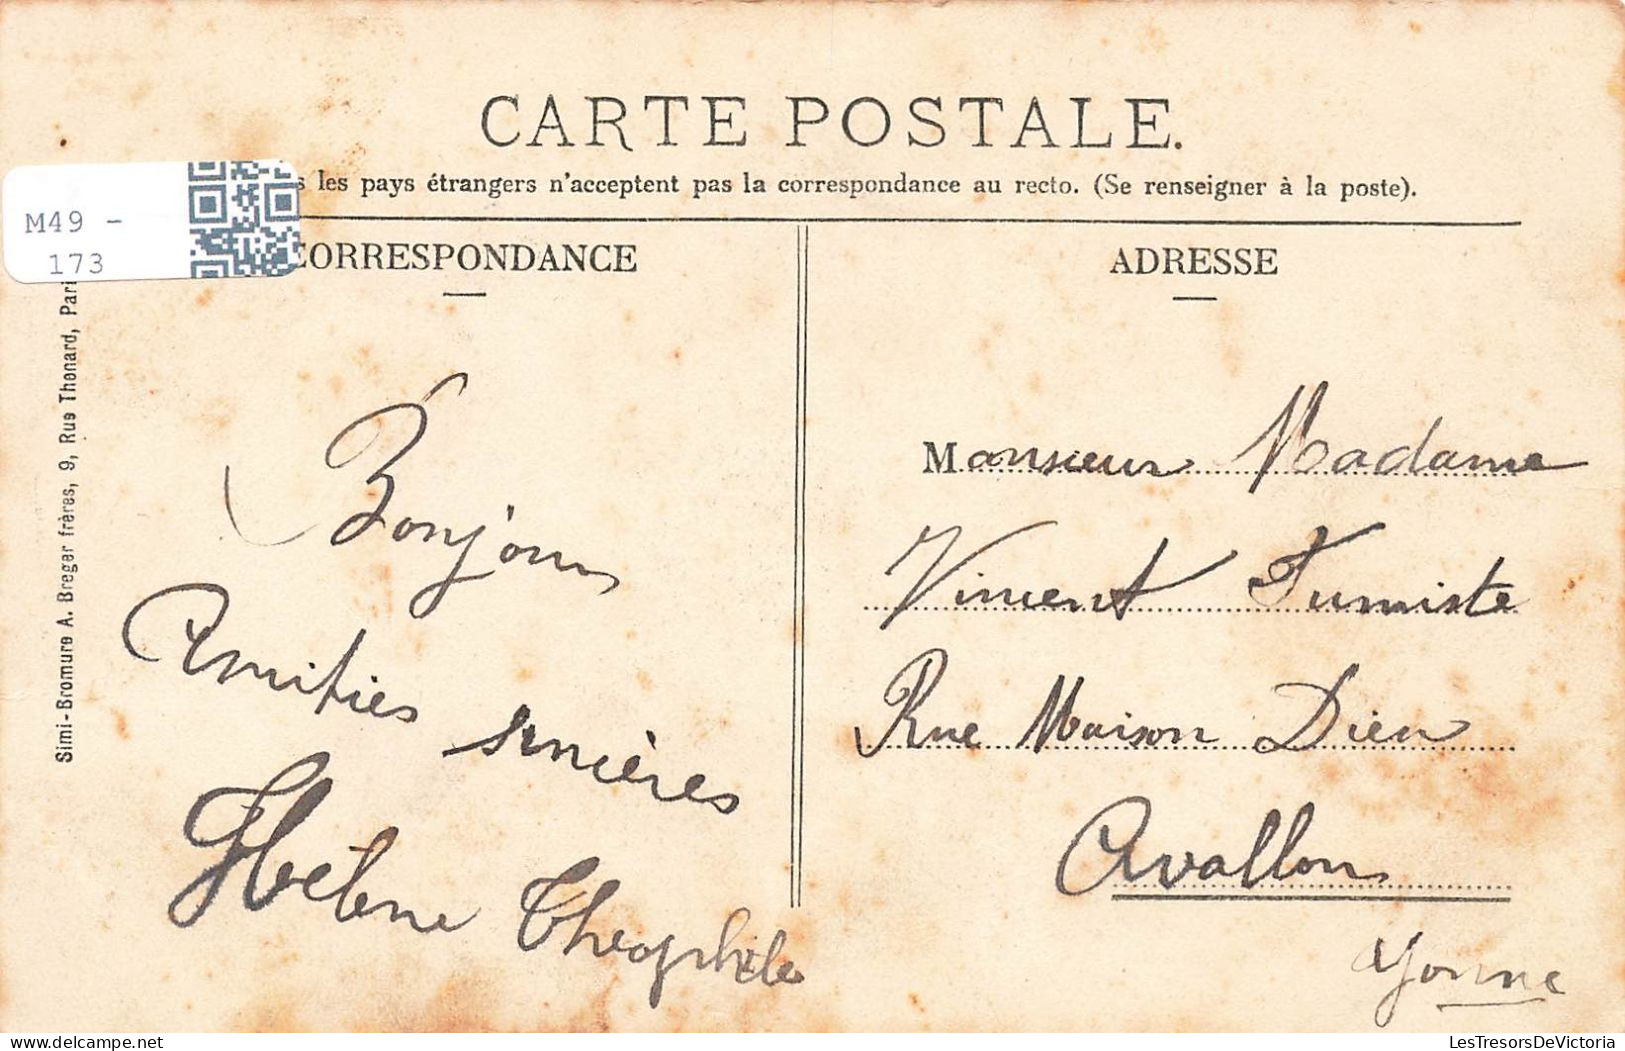 CARTE POSTALE.
les pays étrangers n'acceptent pas la correspondance au recto. (Se renseigner à la poste).
M49 -
173
CORRESPONDANCE
ADRESSE
Simi-Bromure A. Breger frères, 9, Rue Thenard, Pari
Bonjour
Amitiés sincères
Hélène Théophile
Monsieur Madame
Vincent Fumiste
Rue Maison Dieu
Avallon
Yonne
LesTresorsDeVictoria